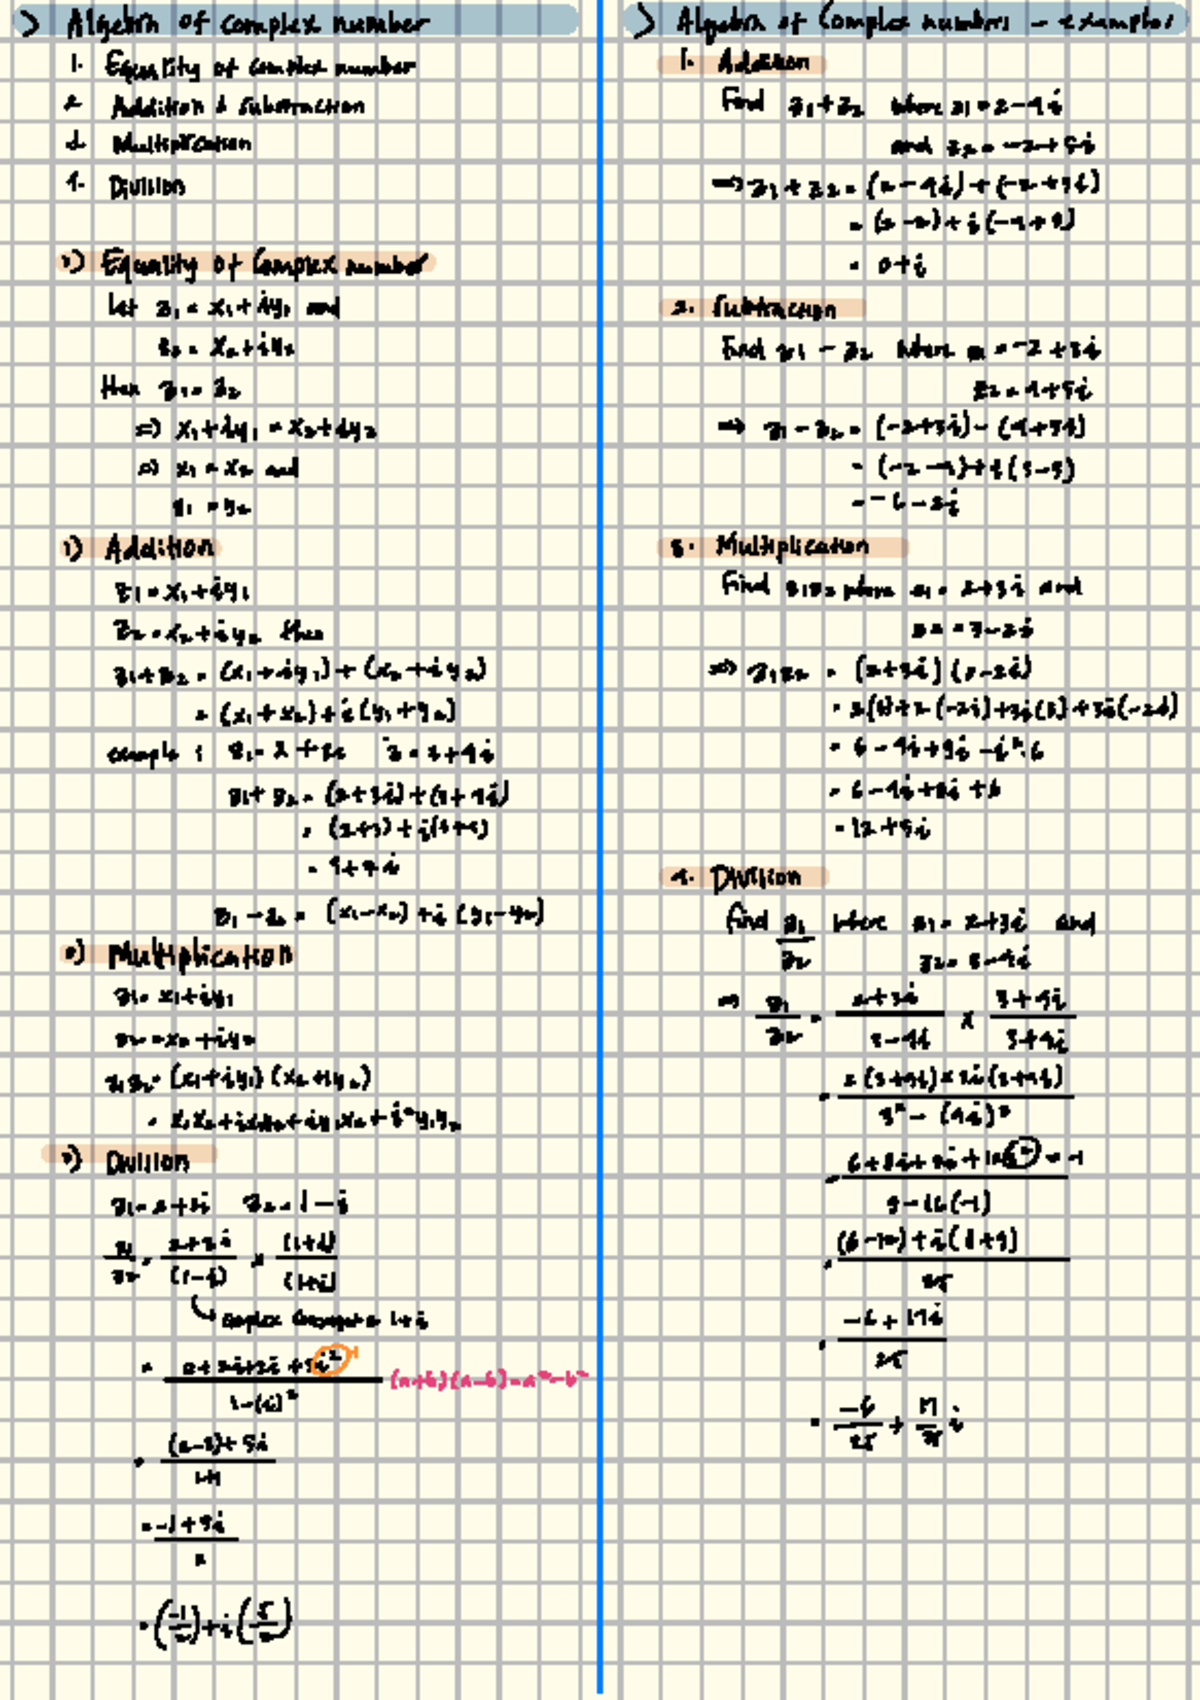 Algebra of complex number
1. Equality of complex number
2 Addition & Subtraction
3. Multiplication
4. Division
Equality of Complex number
Let z₁ = x₁ + iy₁ and
z₂ = x₂ + iy₂
then z₁ = z₂
⇒ x₁ + iy₁ = x₂ + iy₂
⇒ x₁ = x₂ and
y₁ = y₂
Addition
z₁ = x₁ + iy₁
z₂ = x₂ + iy₂ then
z₁ + z₂ = (x₁ + iy₁) + (x₂ + iy₂)
= (x₁ + x₂) + i(y₁ + y₂)
example :
z₁ + z₂ = (2+3i) + (3+4i)
z₁ - z₂ = (x₁-x₂) + i (y₁-y₂)
Multiplication
z₁ = x₁ + iy₁
z₂ = x₂ + iy₂
z₁z₂ = (x₁+iy₁) (x₂+iy₂)
= x₁x₂ + ix₁y₂ + iy₁x₂ + i²y₁y₂
Division
z₁ = 2+3i z₂ = 1-i
(1+i)
(1-i) (1+i)
complex conjugate 1+i
(a+b)(a-b) = a²-b²
= -1+5i
2
= (-1/2) + i (5/2)
Algebra of Complex numbers - examples
1. Addition
Find z₁+z₂ where z₁ = 2-4i
and z₂ = -2+5i
⇒ z₁+z₂ = (2-4i)+(-2+5i)
= (2-2)+i(-4+5)
= 0+i
2. Subtraction
Find z₁ - z₂ where z₁ = -2+3i
z₂ = 4+5i
⇒ z₁ - z₂ = (-2+3i) - (4+5i)
= (-2-4)+i(3-5)
= -6-2i
3. Multiplication
Find z₁z₂ where z₁ = 2+3i and
z₂ = 3-2i
⇒ z₁z₂ = (2+3i) (3-2i)
= 2(3)+2(-2i)+3i(3)+3i(-2i)
= 6-4i+9i-i²·6
= 6-4i+9i+6
= 12+5i
4. Division
Find z₁/z₂ where z₁ = 2+3i and
z₂ = 3-4i
⇒ z₁/z₂ = 2+3i/3-4i × 3+4i/3+4i
3² - (4i)²
9-16(-1)
(6-12)+i(8+9)
25
-6+17i
25
= -6/25 + 17/25 i